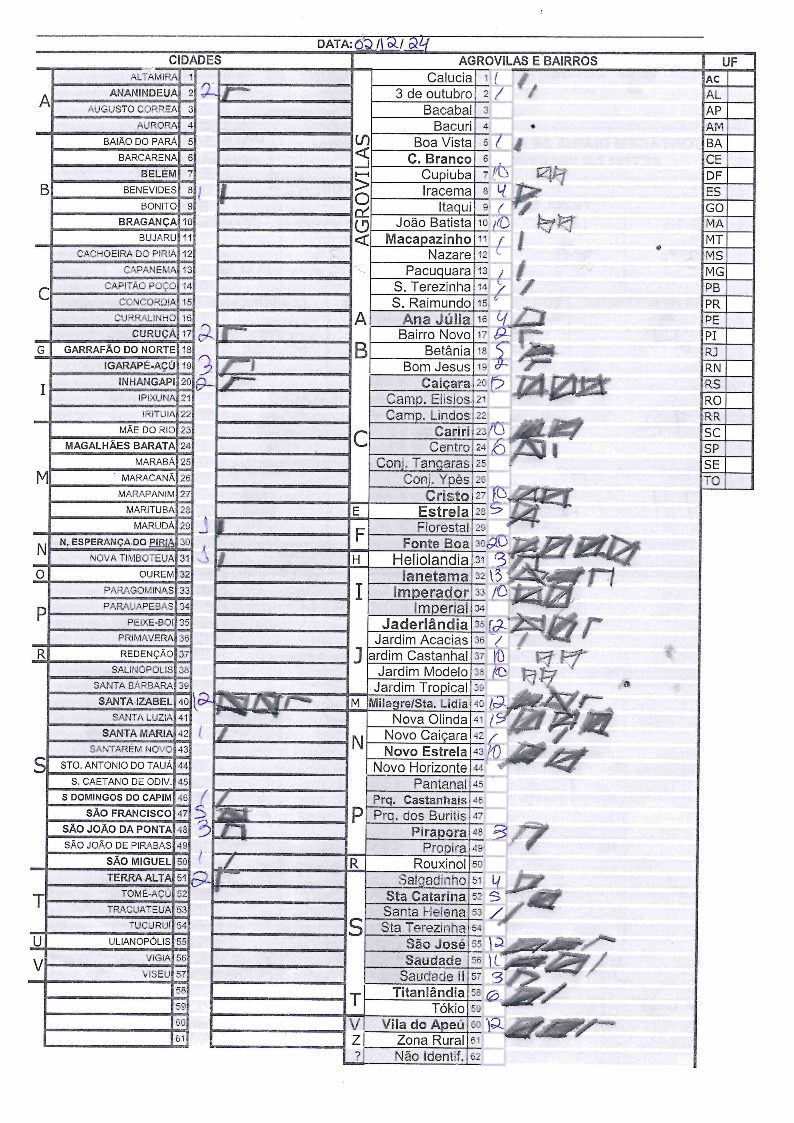 DATA: 02/12/24
CIDADES
A
ALTAMIRA 1
ANANINDEUA 2 2
AUGUSTO CORREA 3
AURORA 4
B
BAIÃO DO PARÁ 5
BARCARENA 6
BELÉM 7
BENEVIDES 8 1
BONITO 9
BRAGANÇA 10
BUJARU 11
C
CACHOEIRA DO PIRIA 12
CAPANEMA 13
CAPITÃO POÇO 14
CONCORDIA 15
CURRALINHO 16
CURUÇA 17 2
G GARRAFÃO DO NORTE 18
I
IGARAPÉ-AÇÚ 19 3
INHANGAPI 20 2
IPIXUNA 21
IRITUIA 22
M
MÃE DO RIO 23
MAGALHÃES BARATA 24
MARABÁ 25
MARACANÃ 26
MARAPANIM 27
MARITUBA 28
MARUDÁ 29 1
N
N. ESPERANÇA DO PIRIA 30
NOVA TIMBOTEUA 31 1
O OUREM 32
P
PARAGOMINAS 33
PARAUAPEBAS 34
PEIXE-BOI 35
PRIMAVERA 36
R REDENÇÃO 37
S
SALINÓPOLIS 38
SANTA BÁRBARA 39
SANTA IZABEL 40 12
SANTA LUZIA 41
SANTA MARIA 42 1
SANTARÉM NOVO 43
STO. ANTONIO DO TAUÁ 44
S. CAETANO DE ODIV. 45
S DOMINGOS DO CAPIM 46 1
SÃO FRANCISCO 47 5
SÃO JOÃO DA PONTA 48 3
SÃO JOÃO DE PIRABAS 49
SÃO MIGUEL 50 1
T
TERRA ALTA 51 2
TOMÉ-AÇÚ 52
TRACUATEUA 53
TUCURUÍ 54
U ULIANOPÓLIS 55
V
VIGIA 56
VISEU 57
58
59
60
61
AGROVILAS E BAIRROS
AGROVILAS
Calucia 1 1
3 de outubro 2 1
Bacabal 3
Bacuri 4
Boa Vista 5 1
C. Branco 6
Cupiuba 7 10
Iracema 8 4
Itaqui 9 1
João Batista 10 10
Macapazinho 11 1
Nazare 12
Pacuquara 13 1
S. Terezinha 14 1
S. Raimundo 15
A Ana Júlia 16 4
B
Bairro Novo 17 2
Betânia 18 5
Bom Jesus 19 2
C
Caiçara 20
Camp. Elisios 21
Camp. Lindos 22
Cariri 23 10
Centro 24 6
Conj. Tangaras 25
Conj. Ypês 26
Cristo 27 10
E Estrela 28 5
F
Florestal 29
Fonte Boa 30 20
H Heliolandia 31 3
I
Ianetama 32 13
Imperador 33 10
Imperial 34
J
Jaderlândia 35 12
Jardim Acacias 36 1
ardim Castanhal 37 10
Jardim Modelo 38 10
Jardim Tropical 39
M Milagre/Sta. Lidia 40 12
N
Nova Olinda 41 15
Novo Caiçara 42 1
Novo Estrela 43 10
Novo Horizonte 44
P
Pantanal 45
Prq. Castanhais 46
Prq. dos Buritis 47
Pirapora 48 3
Propira 49
R Rouxinol 50
S
Salgadinho 51 4
Sta Catarina 52 5
Santa Helena 53 1
Sta Terezinha 54
São José 55 12
Saudade 56 11
Saudade II 57 3
T
Titanlândia 58 6
Tókio 59
V Vila do Apeú 60 12
Z Zona Rural 61
? Não Identif. 62
UF
AC
AL
AP
AM
BA
CE
DF
ES
GO
MA
MT
MS
MG
PB
PR
PE
PI
RJ
RN
RS
RO
RR
SC
SP
SE
TO